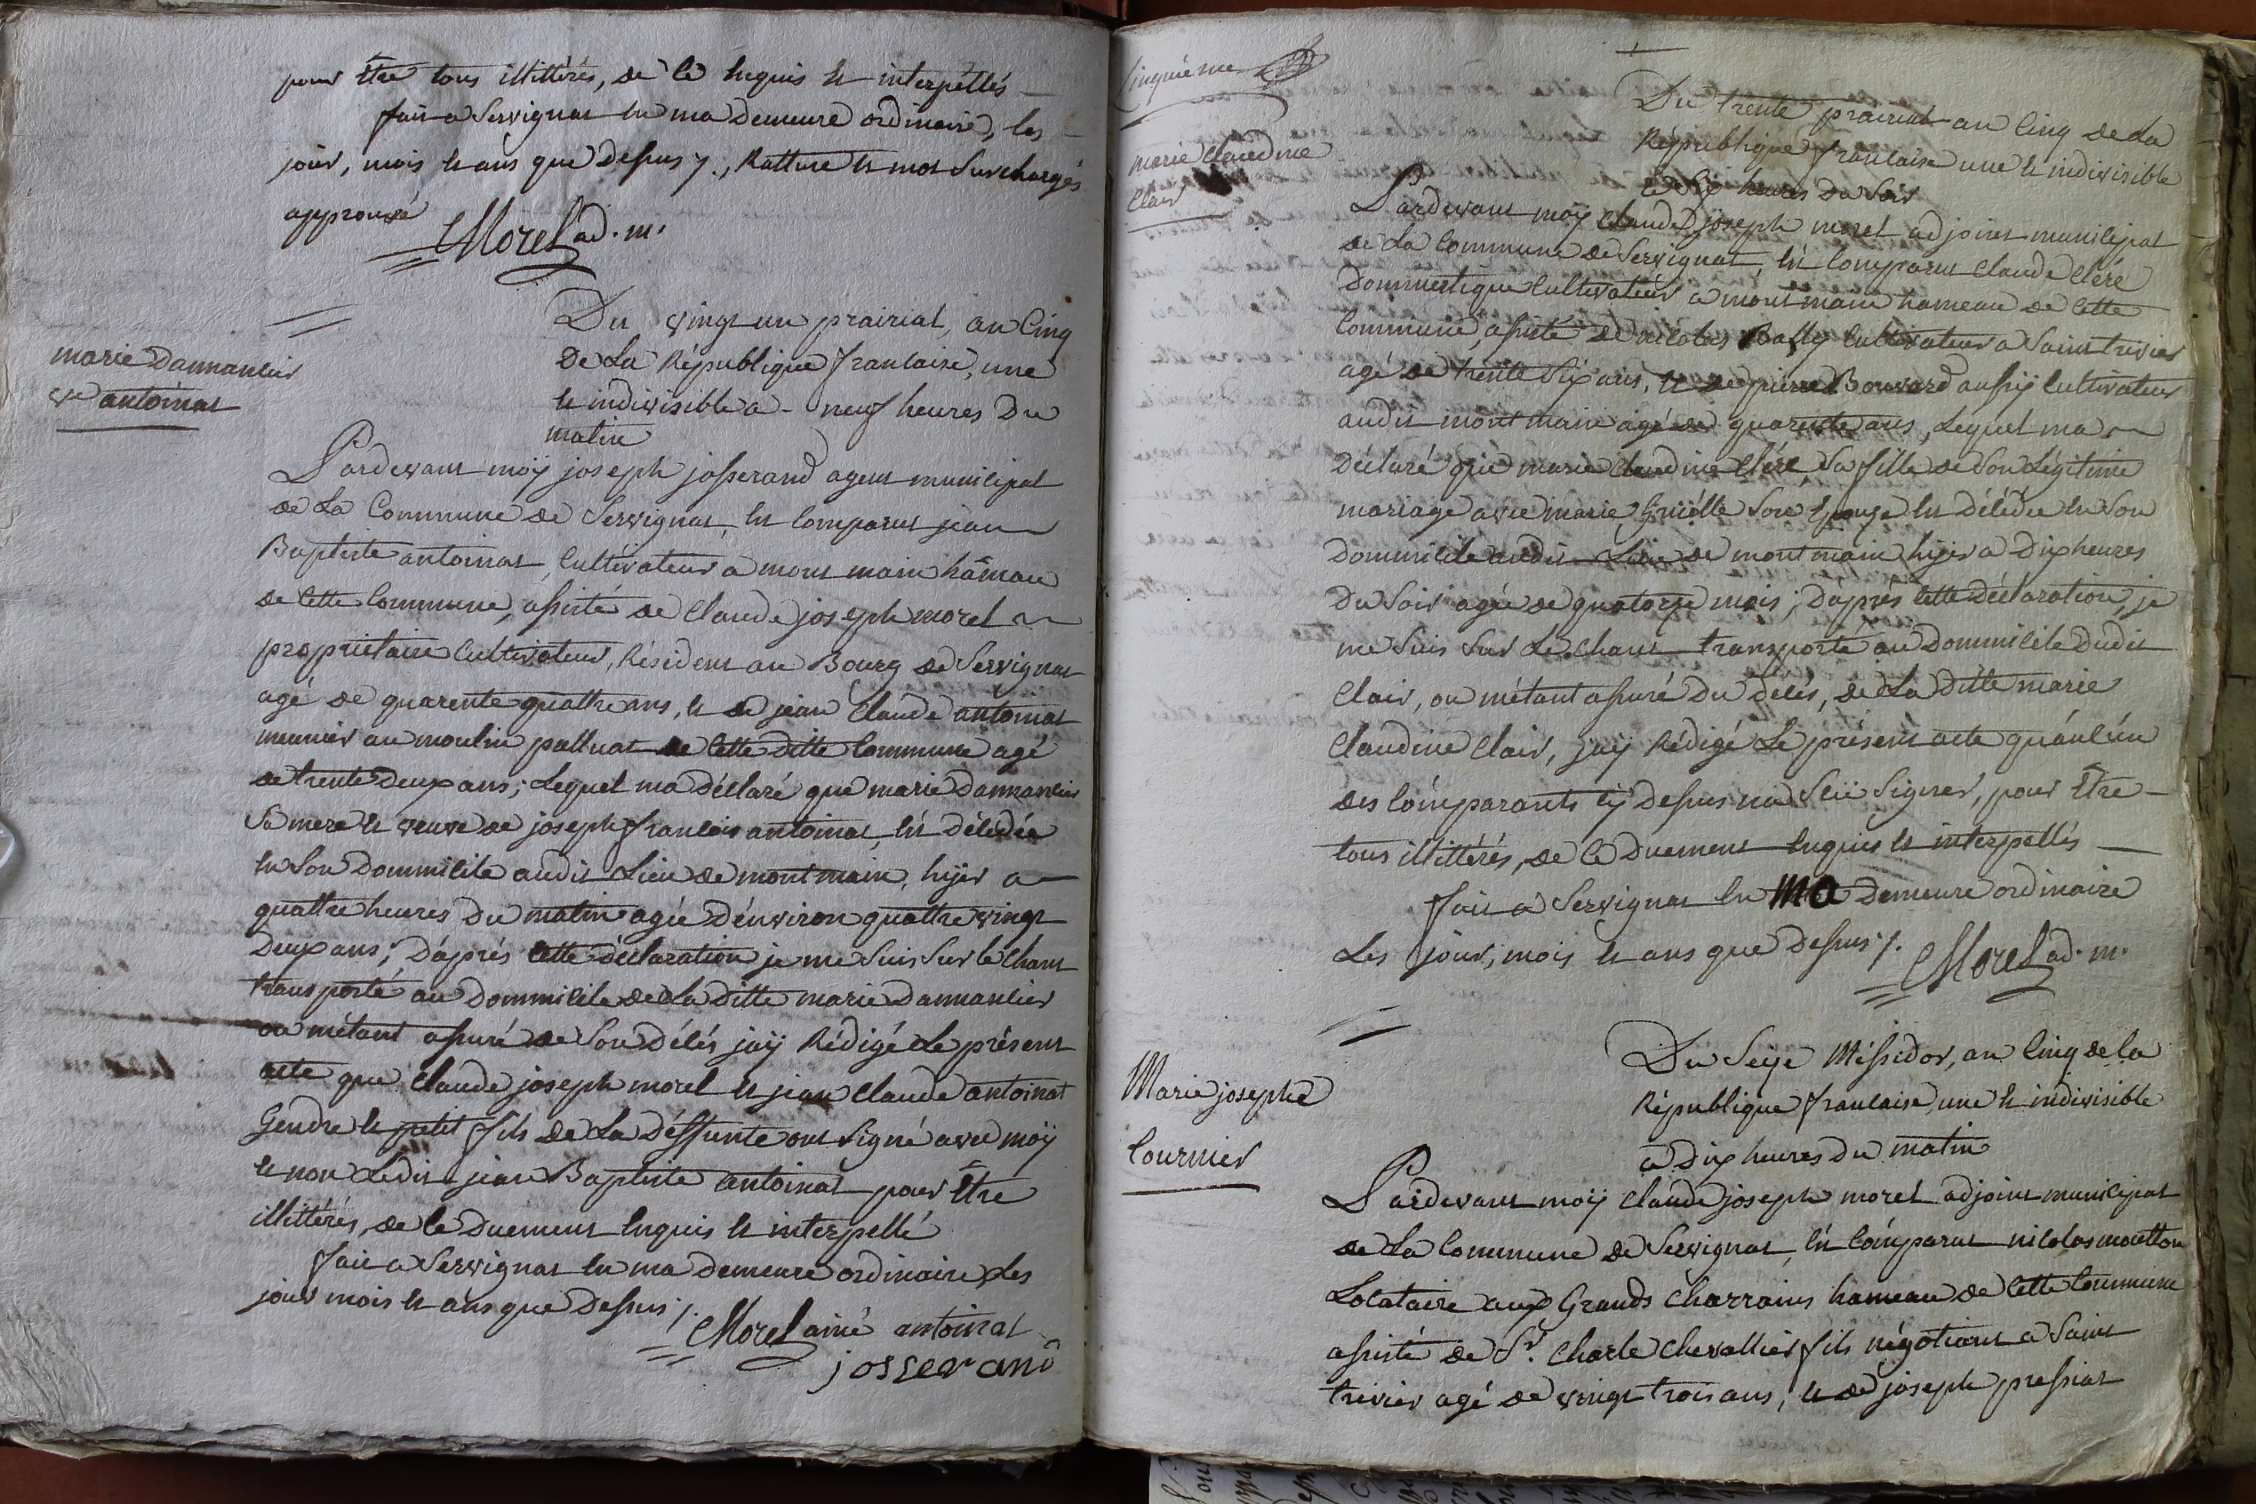 pour être tous illittérés, de ce enquis et interpellés
fait a Servignat en ma demeure ordinaire, les
jour, mois et ans que dessus ./. Ratture et mot surchargés
approuvé
CMorel ad. m.
marie Dannancier
ve antoinat
Du vingt un prairial, an cinq
de La République francaise, une
et indivisible a neuf heures du
matin
Pardevant moÿ joseph josserand agent municipal
de La Commune de Servignat, est comparut jean
Baptiste antoinat, cultivateur a mont main hâmau
de cette commune, assisté de claude joseph morel
propriétaire cultivateur, Résident au Bourg de Servignat
agé de quarente quattre ans, et de jean claude antoinat
meunier au moulin palluat de cette ditte commune agé
de trente deux ans; Lequel ma déclaré que marie Dannancier
Sa mere et veuve de joseph francois antoinat, est décédée
en son dommicile audit Lieu de mont main, hijer a
quattre heures du matin agée d'environ quattre vingt
deux ans; Daprés cette déclaration je me suis sur le chant
transporté au dommicile de La ditte marie Dannancier
ou métant assuré de son décés jaÿ Rédigé Le présent
acte que claude joseph morel et jean claude antoinat
Gendre et petit fils de La deffunte ont signé avec moÿ
et non Ledit jean Baptiste antoinat pour être
illittérés, de ce duement enquis et interpellé
fait a Servignat en ma demeure ordinaire Les
jour mois et ans que dessus ./.
CMorel ainé antoinat
josserand
Cinquième
marie claudine
Clair
Du trente prairial an cinq de La
République francaise une et indivisible
a six heures du soir
Pardevant moÿ claude joseph morel adjoint municipal
de La commune de Servignat, est comparut claude cléré
dommestique cultivateur a mont main hameau de cette
commune, assisté de nicolas Bally cultivateur a Saint trivier
agé de trente six ans, et de pierre Bouvard aussÿ cultivateur
audit mont main agé de quarente ans, Lequel ma
déclaré que marie claudine cléré, sa fille de son Légitime
mariage avec marie Gruëlle son épouse est décédée en son
dommicile audit Lieu de mont main hijer a dix heures
du soir agée de quatorze mois; Daprès cette déclaration, je
me suis sur Le chant transporté au dommicile dudit
Clair, ou métant assuré du décés, de La ditte marie
Claudine Clair, jaÿ Rédigé Le présent acte quáucún
des comparants cÿ dessus na sçû signer, pour être
tous illittérés, de ce duement enquis et interpellés
fait a Servignat en ma demeure ordinaire
Les jour, mois et ans que dessus ./. CMorel ad. m.
Marie josephe
Cournier
Du Seize Messidor, an cinq de la
République francaise, une et indivisible
a dix heures du matin
Pardevant moÿ claude joseph morel adjoint municipal
de La commune de Servignat, est comparut nicolas moutton
Locataire aux Grands Charrains hameau de cette commune
assisté de Sr. Charle chevallier fils négotiant a Saint
trivier agé de vingt trois ans, et de joseph pressiat